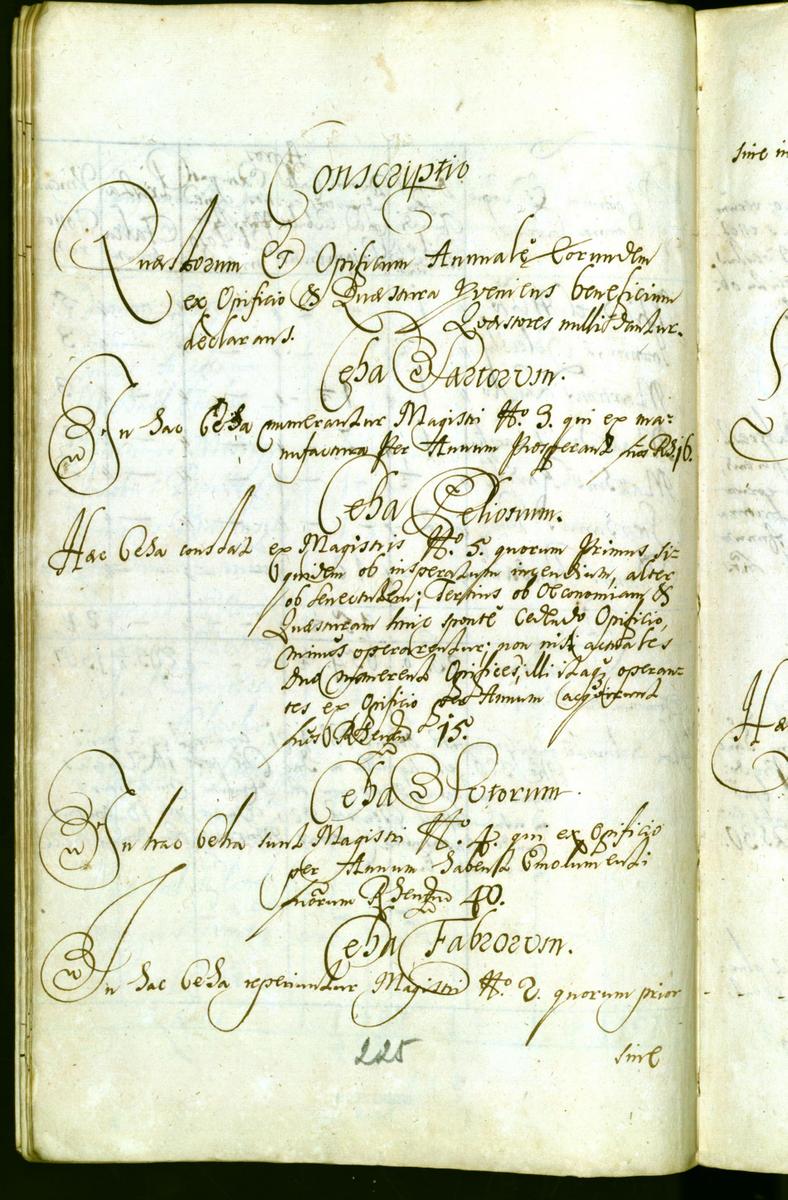 Conscriptio
Quæstorum Et Opificum Annualẽ Eorundem
ex Opificio & Quæstura Pveniens beneficium
declarans. Quæstores nulli dantur.
Ceha Sartorum.
In hac Ceha numerantur Magistri Nro. 3. qui ex ma=
nufactura Per Annum Prosperant fnos Rh. 16.
Ceha Pelionum.
Hæc Ceha constat ex Magistris Nro. 5. quorum Primus si=
quidem ob insperatum incendium, alter
ob senectutem; Tertius ob Oeconomiam &
Quæsturam huic sponte cedendo Opificio,
minus operarentur; non nisi actuales
duo numerent Opifices, illi itaq, operan=
tes ex Opificio per Annum acquirunt
fnos Rhen 15.
Ceha Sutorum.
In hac Ceha sunt Magistri Nro. 4. qui ex Opificio
per Annum habent Emolumenti
fnorum Rhen 40.
Ceha Fabrorum.
In hac Ceha reperiuntur Magistri Nro. 2. quorum prior
225
sine
sine in
Hæ